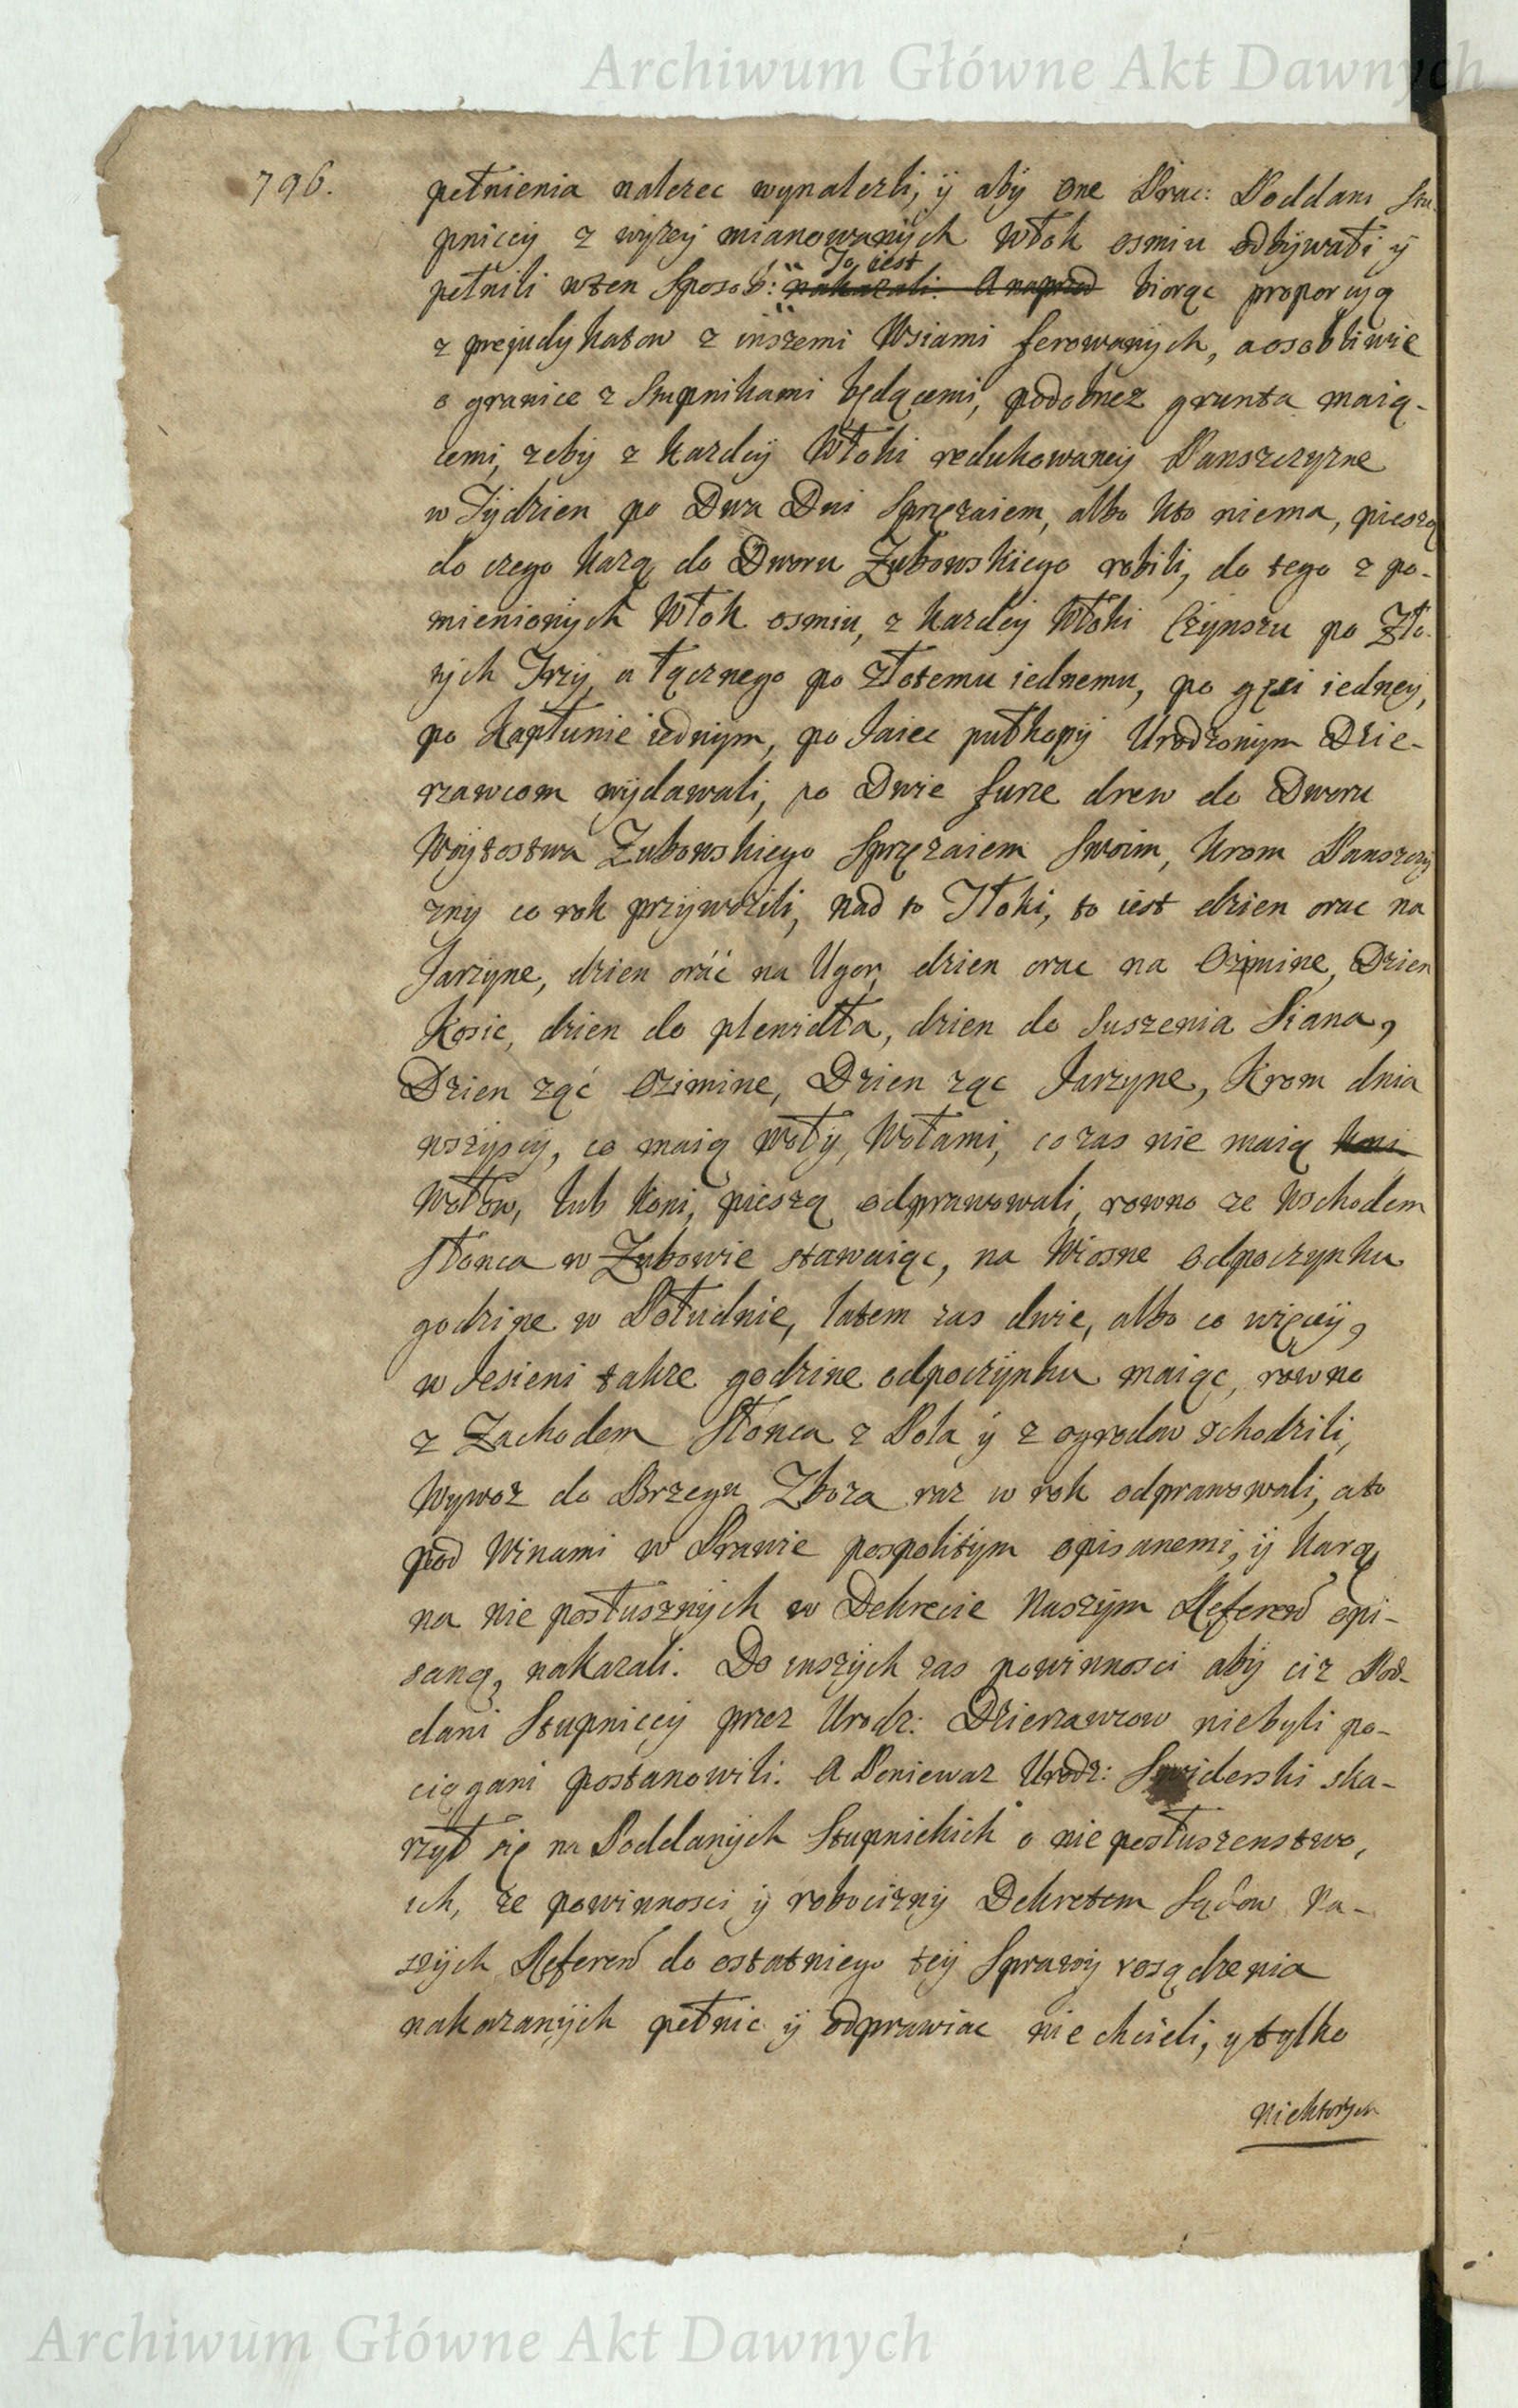 Archiwum Główne Akt Dawnych
796.
pełnienia nalezec wynalezli, ÿ abÿ one Prac: Poddani Stu-
pniccÿ z wyzeÿ mianowanÿch Włok osmiu odbÿwali ÿ
To iest
pełnili wten Sposob: nakazali. A naprzod biorąc proporcyą
z prejudykatow z inszemi Wsiami ferowanÿch, aosobliwie
o granice z Stupnikami będącemi, podobnez grunta maią-
cemi, zebÿ z kazdeÿ Włoki redukowaneÿ Panszczyzne
w Tÿdzien po Dwa Dni Sprzęzaiem, albo kto niema, pieszo
do czego kazą do Dworu Zubowskiego robili, do tego z po-
mienionÿch Włok osmiu, z kazdeÿ Włoki Czÿnszu po Zło-
tÿch Trzÿ, a łącznego po złotemu iednemu, po gęsi iedneÿ,
po Kapłunie iednÿm, po Jaiec pułkopÿ Urodzonÿm Dzie-
rzawcom wÿdawali, po Dwie furze drew do Dworu
Woÿtostwa Zubowskiego Sprzęzaiem Swoim, krom Panszczy
znÿ co rok przÿwozili, nad to Tłoki, to iest dzien orac na
Jarzyne, dzien oráć na Ugor, dzien orac na Ozimine, Dzien
Kosic, dzien do plewidła, dzien do Suszenia Siana,
Dzien ząć Ozimine, Dzien ząc Jarzyne, Krom dnia
wszÿscÿ, co maią wołÿ, Wołami, co zas nie maią koni
Wołow, lub koni, pieszą odprawowali, rowno ze wschodem
Słonca w Zubowie stawaiąc, na Wiosne odpoczynku
godzine w Południe, latem zas dwie, albo co więcÿ,
w Jesieni takze godzine odpoczÿnku maiąc, rowno
z Zachodem Słońca z Pola ÿ z ogrodow schodzili,
Wywoz do Brzegu Zboza raz w rok odprawowali, ato
pod Winami w Prawie pospolitÿm opisanemi, ÿ karą
na nie posłusznÿch w Dekrecie Naszÿm Referend opi-
saną, nakazali. Do inszÿch zas powinnosci abÿ ciz Pod-
dani Stupniccÿ przez Urodz: Dzierzawcow niebyli po-
ciągani postanowili. A Poniewaz Urodz: Swiderski ska-
rzył się na Poddanÿch Stupnickich o nie posłuszenstwo,
ich, ze powinnosci ÿ robociznÿ Dekretem Sądow Na-
szÿch Referend do ostatniego teÿ Sprawÿ rosądzenia
nakazanÿch pełnic ÿ odprawiac nie chcieli, y tylko
niektorych
Archiwum Główne Akt Dawnych